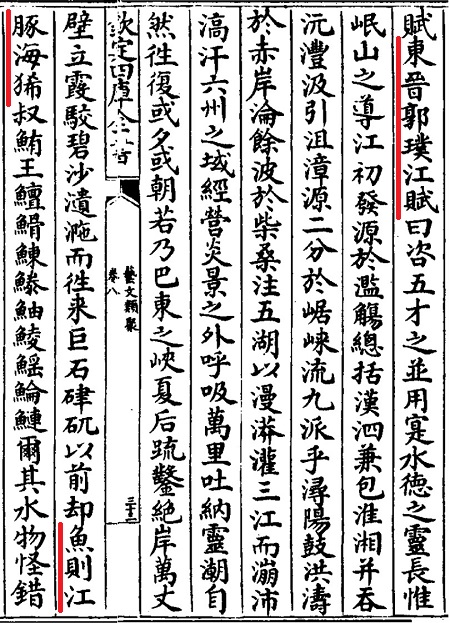 賦東晉郭璞江賦曰咨五才之並用寔水徳之靈長惟
岷山之導江初發源於濫觴總括漢泗兼包淮湘并吞
沅灃汲引沮漳源二分於崌崍流九派乎潯陽鼓洪濤
於赤岸淪餘波於柴桑注五湖以漫漭灌三江而漰沛
滈汗六州之域經營炎景之外呼吸萬里吐納靈潮自
然徃復或夕或朝若乃巴東之峽夏后疏鑿絶岸萬丈
欽定四庫全書
藝文類聚
卷八
三十二
壁立霞駮碧沙瀢㳠而徃來巨石硉矹以前却魚則江
豚海狶叔鮪王鱣䱻鰊鰧鮋鯪鰩鯩鰱爾其水物怪錯